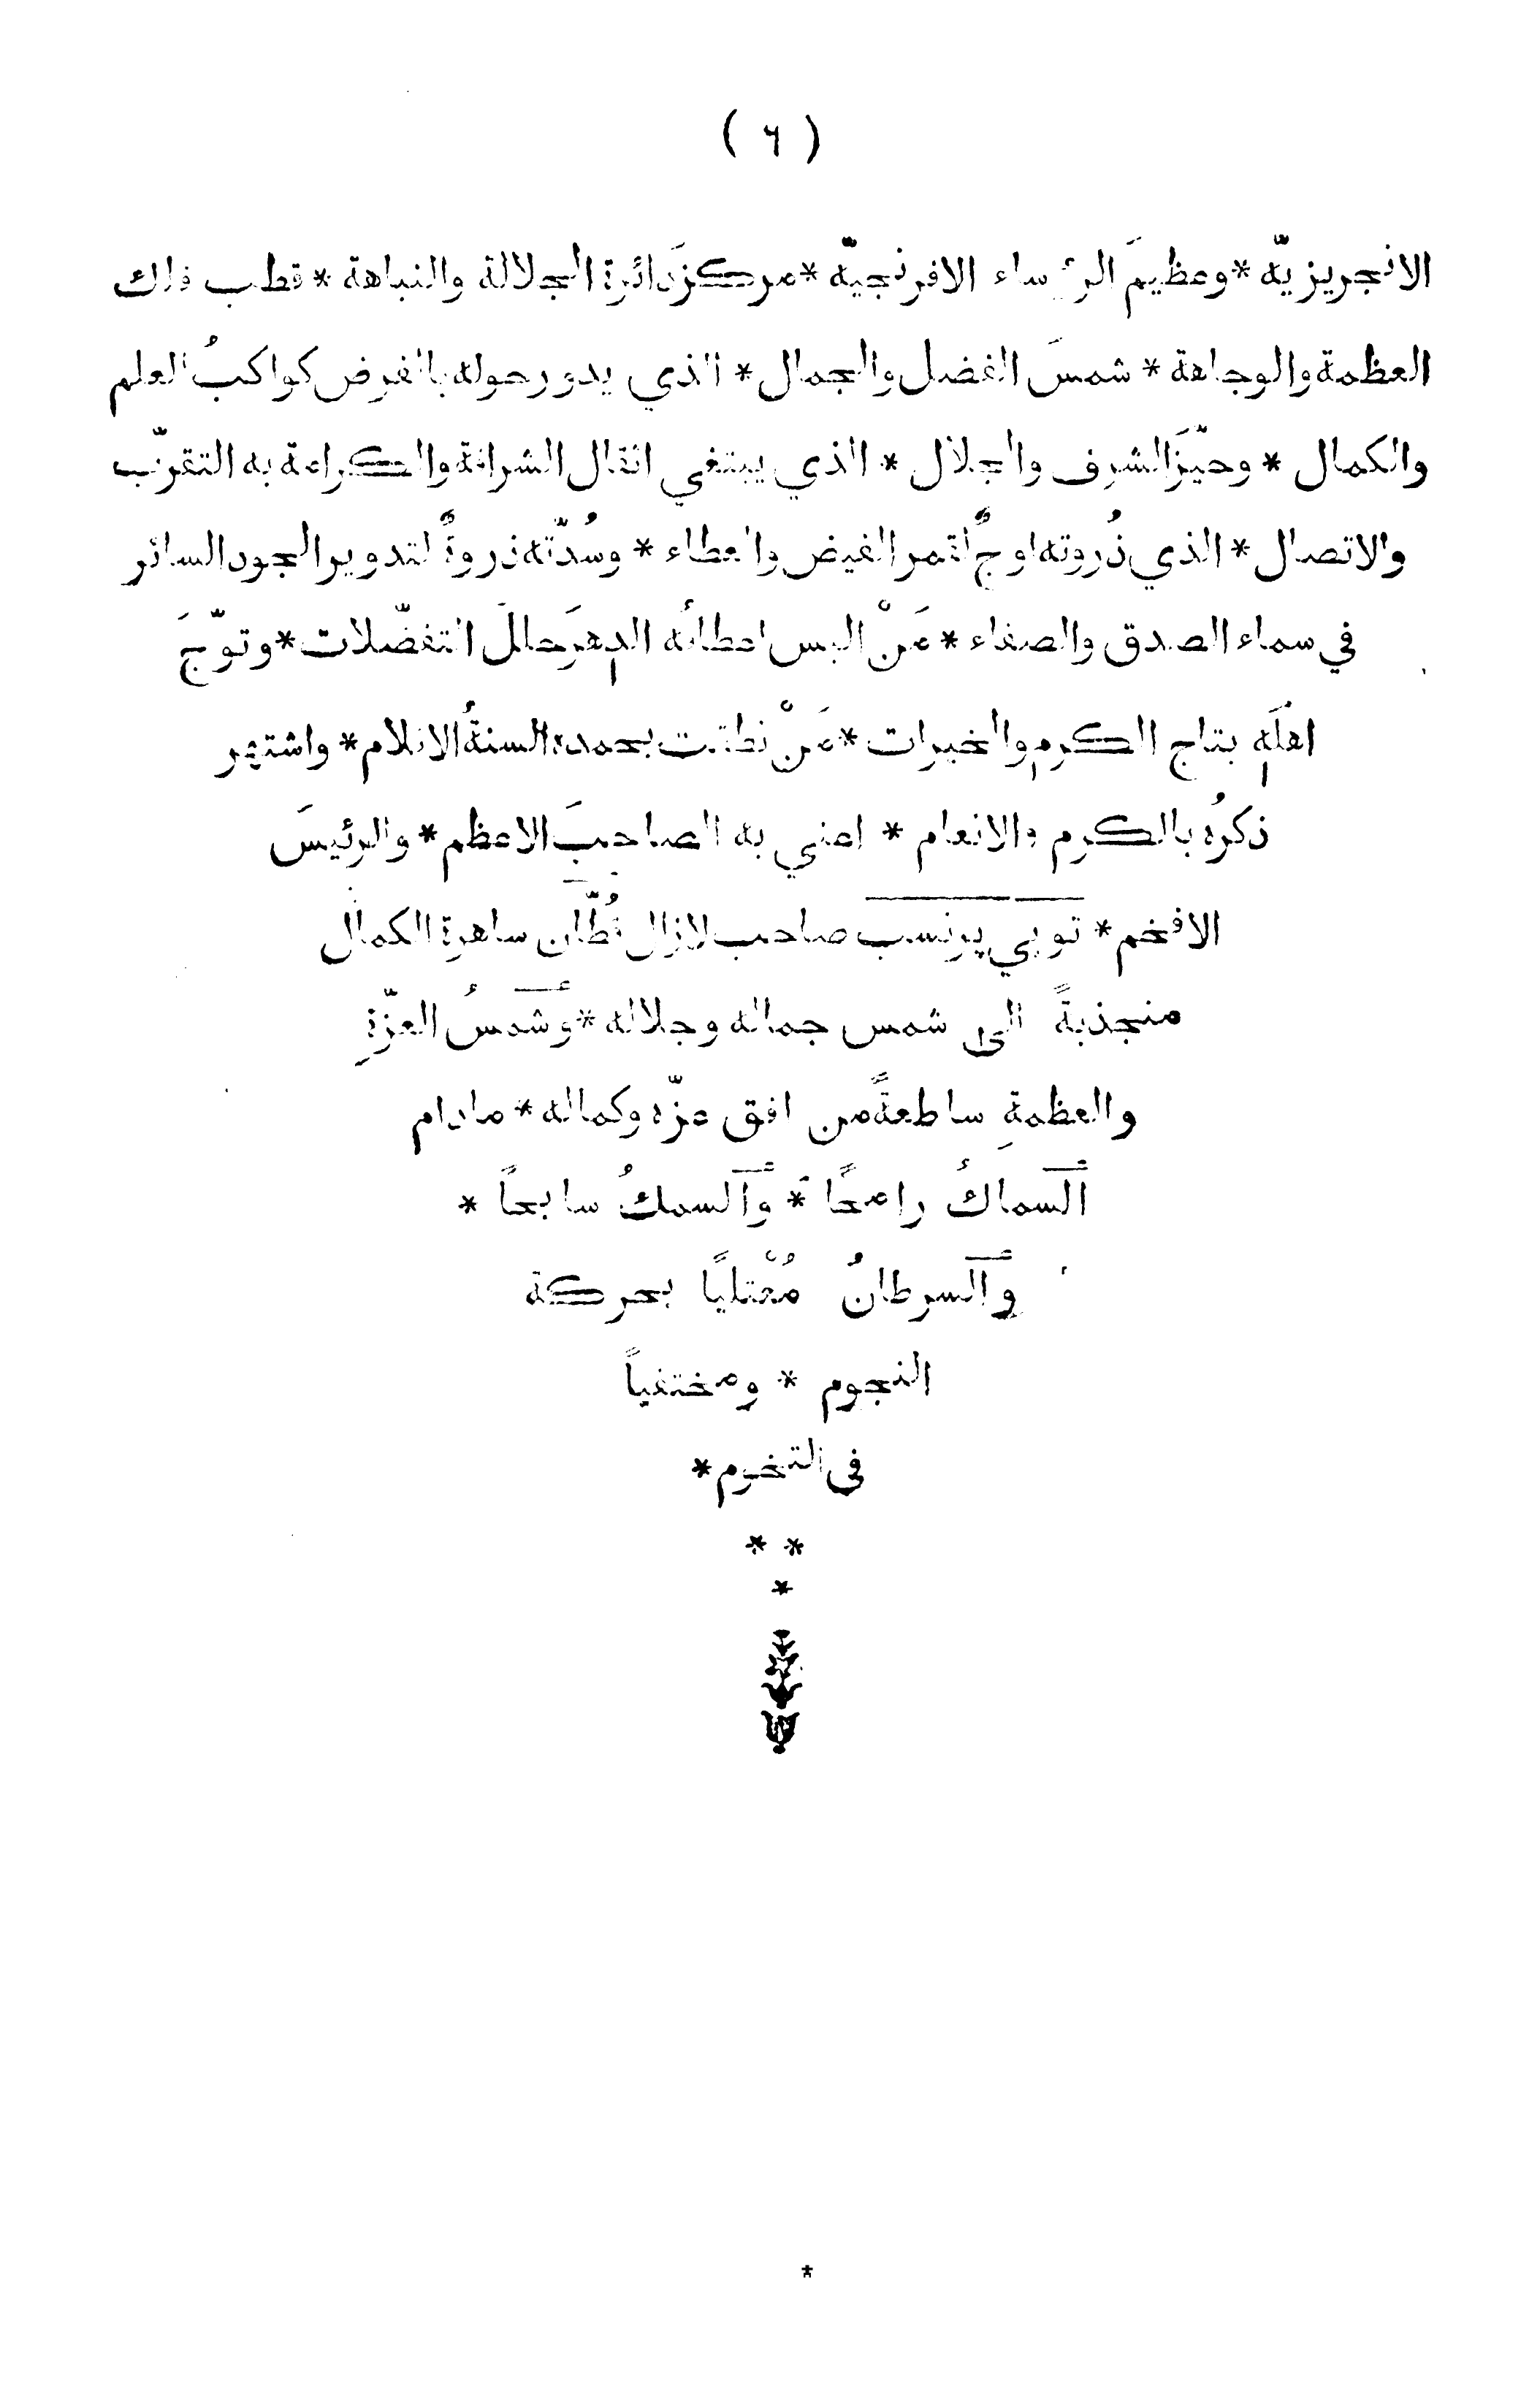 ( ٦ )
الانجريزيّه * وعظيمَ الرؤساء الافرنجيّه * مركزَ دائرة الجلالة والنباهة * قطب فلك
العظمة والوجاهة * شمسَ الفضل والجمال * الذي يدور حوله بالفرض كواكبُ العلم
والكمال * وحيّزَ الشرف والجلال * الذي يبتغي اثقال الشرافة والكرامة به التقرّب
والاتصال * الذي ذُروته اوجٌ لقمر الفيض والعطاء * وسُدّته ذروةٌ لتدوير الجود السائر
في سماء الصدق والصفاء * مَنْ البس اعطائُه الدهرَ حللَ التفضّلات * وتوّجَ
اهلَه بتاج الكرم والخيرات * مَنْ نطقت بحمده السنةُ الاقلام * واشتهر
ذكرُه بالكرم والانعام * اعني به الصاحبَ الاعظم * والرئيسَ
الافخم * توبي پرنسب صاحب لازال قُطّان ساهرة الكمال
منجذبةً الى شمس جماله وجلاله * وشمسُ العزّةِ
والعظمةِ ساطعةً من افق عزّه وكماله * مادام
السماكُ رامحًا * والسمكُ سابحاً *
والسرطانُ مُعْتليًا بحركة
النجوم * ومختفياً
فى التخوم *
* *
*
*